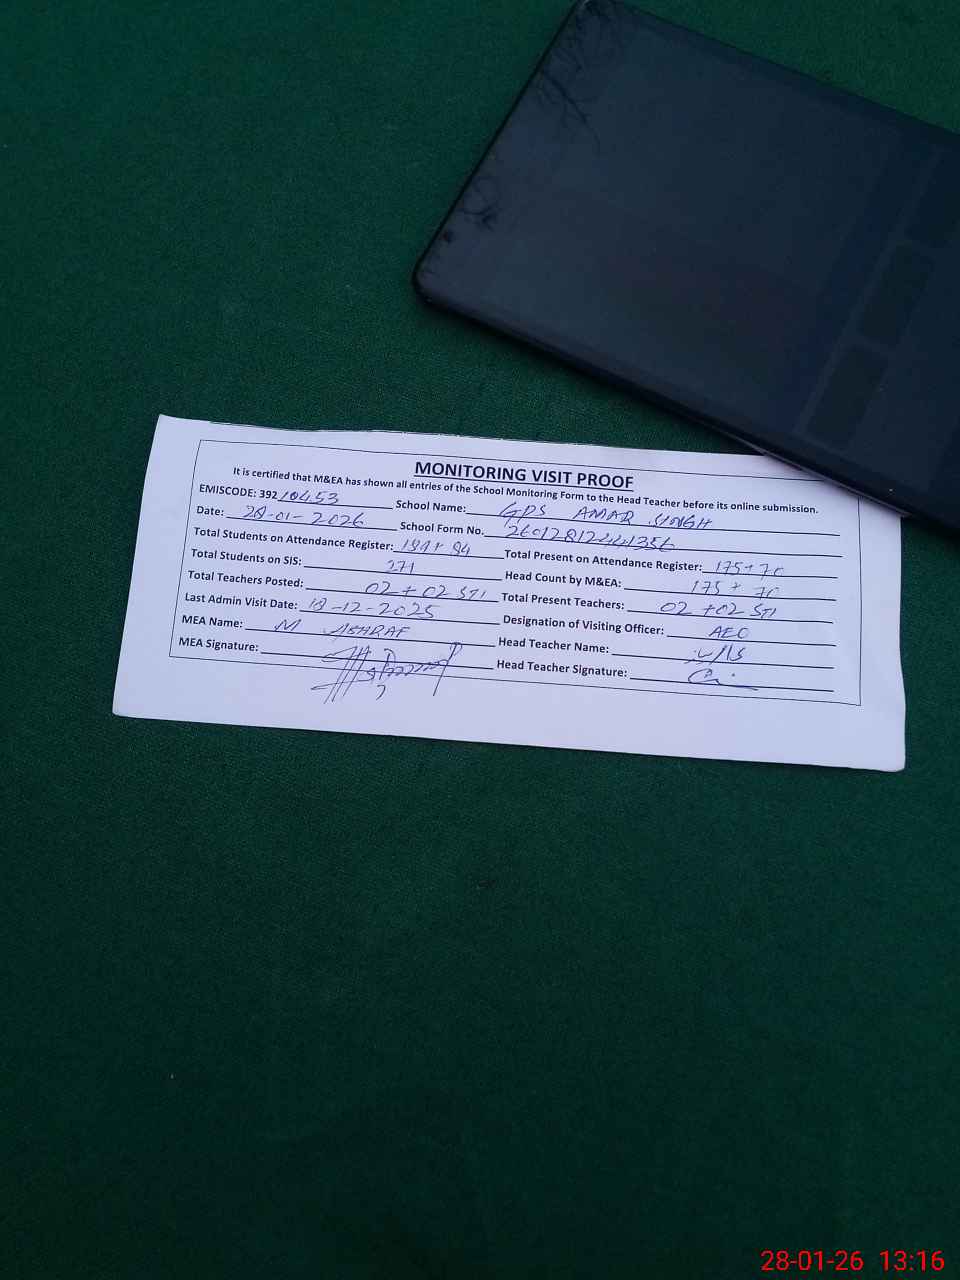 MONITORING VISIT PROOF
It is certified that M&EA has shown all entries of the School Monitoring Form to the Head Teacher before its online submission.
EMISCODE: 392 10453 School Name: GPS AMAR SINGH
Date: 28-01-2026 School Form No. 26012812441356
Total Students on Attendance Register: + 84 Total Present on Attendance Register: 175+70
Total Students on SIS: 271 Head Count by M&EA: 175 + 70
Total Teachers Posted: 02 + 02 STI Total Present Teachers: 02 +02 STI
Last Admin Visit Date: 18-12-2025 Designation of Visiting Officer: AEO
MEA Name: M ASHRAF Head Teacher Name:
MEA Signature: Head Teacher Signature:
28-01-26 13:16